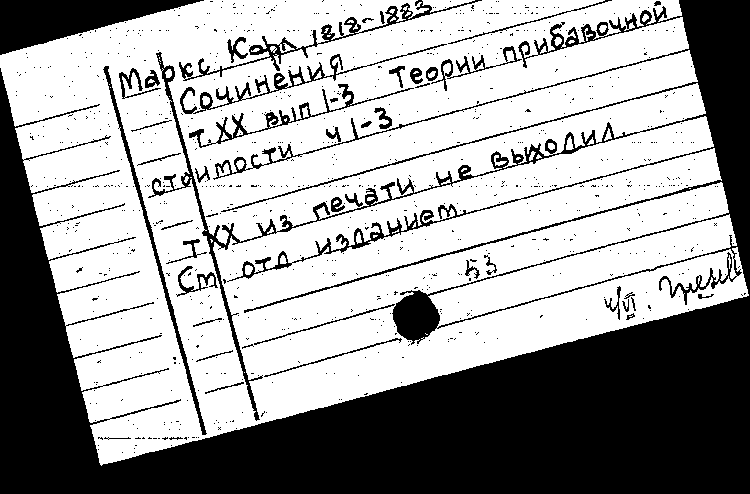 Маркс, Карл, 1818-1883
Сочинения
т. XX вып 1-3 Теории прибавочной
стоимости ч 1-3.
т XX из печати не выходил.
См. отд. изданием.
53